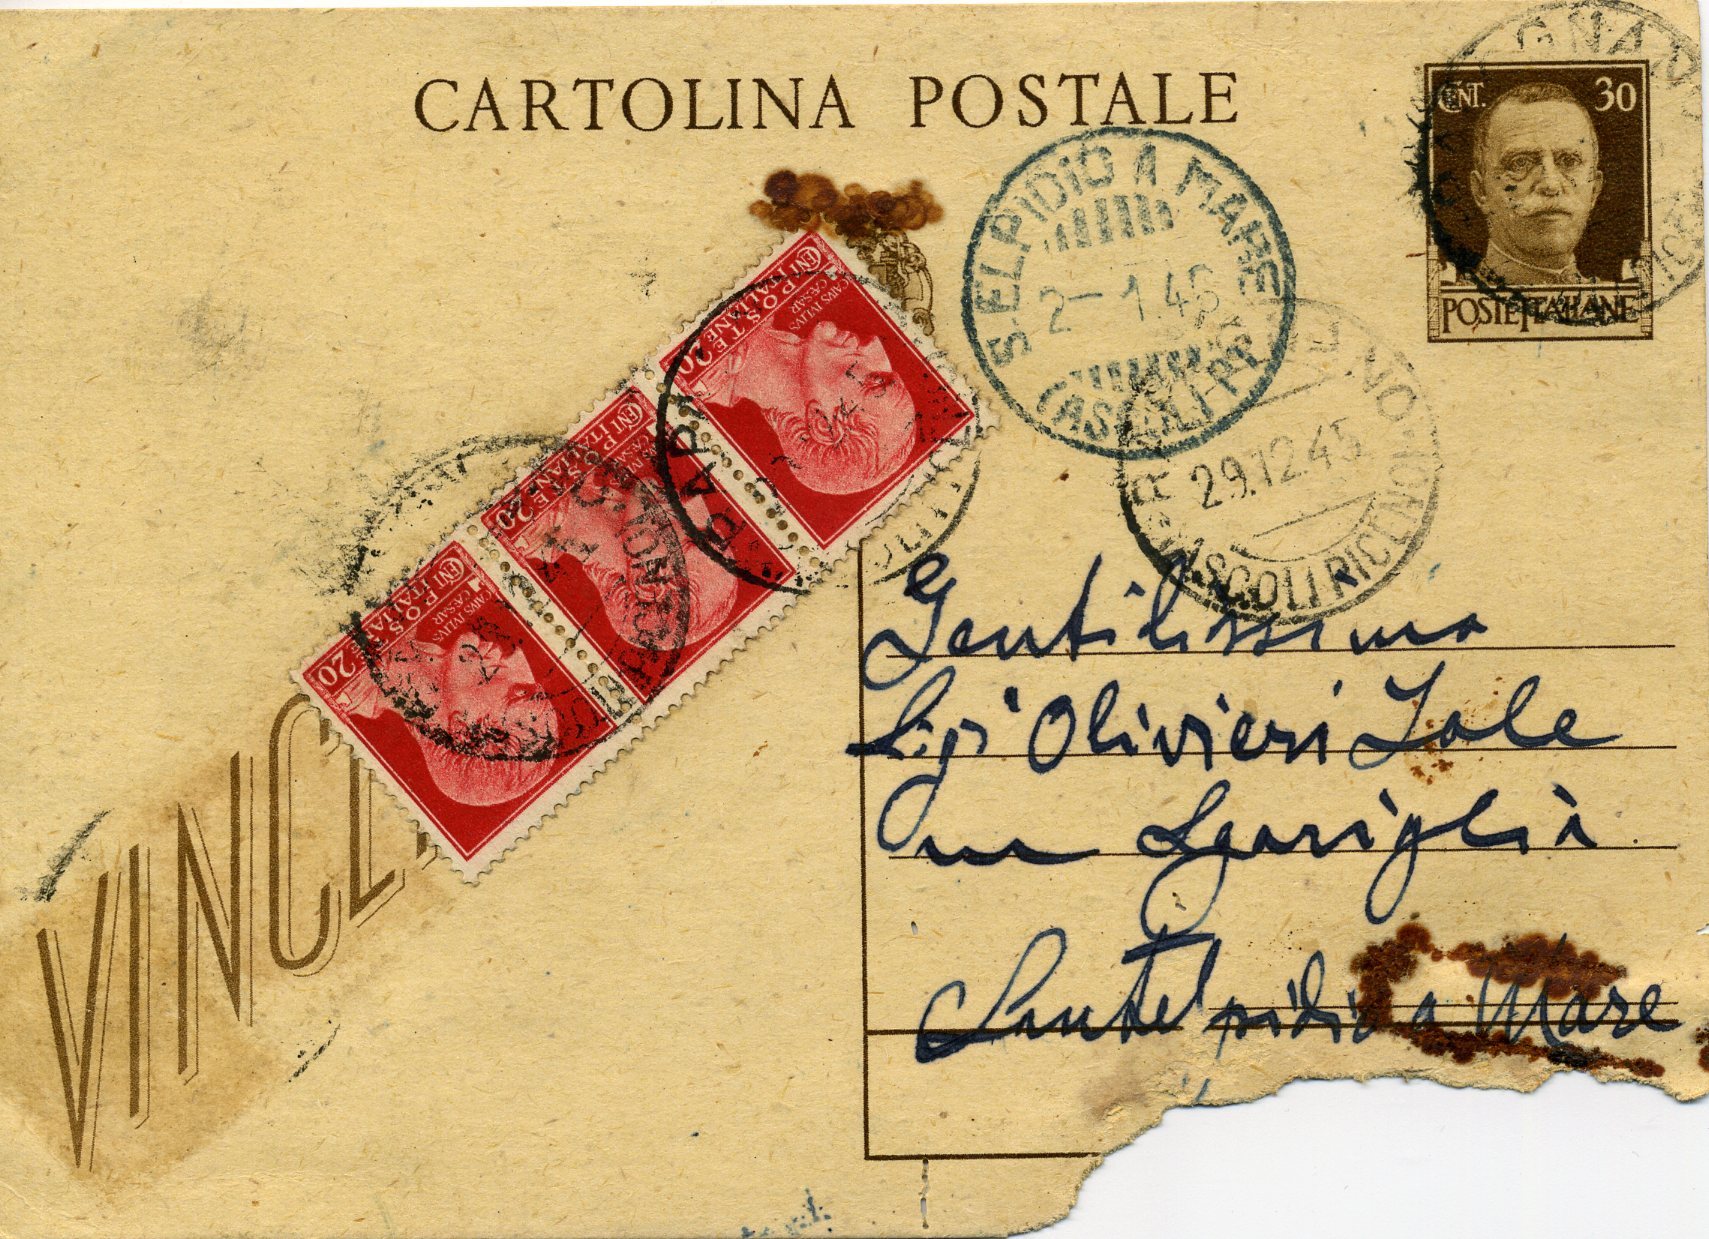 CARTOLINA POSTALE
CENT. 30
POSTE ITALIANE
S. ELPIDIO A MARE
2-1.46
(ASCOLI P.)
29.12.45
ASCOLI PICENO
CENT. 20
POSTE ITALIANE
CAIVS IVLIVS
CAESAR
CENT. 20
POSTE ITALIANE
CENT. 20
POSTE ITALIANE
CAIVS IVLIVS
CAESAR
VINCE
Gentilissima
Sig. Olivieri Iole
in Sgariglià
Sant'Elpidio a Mare